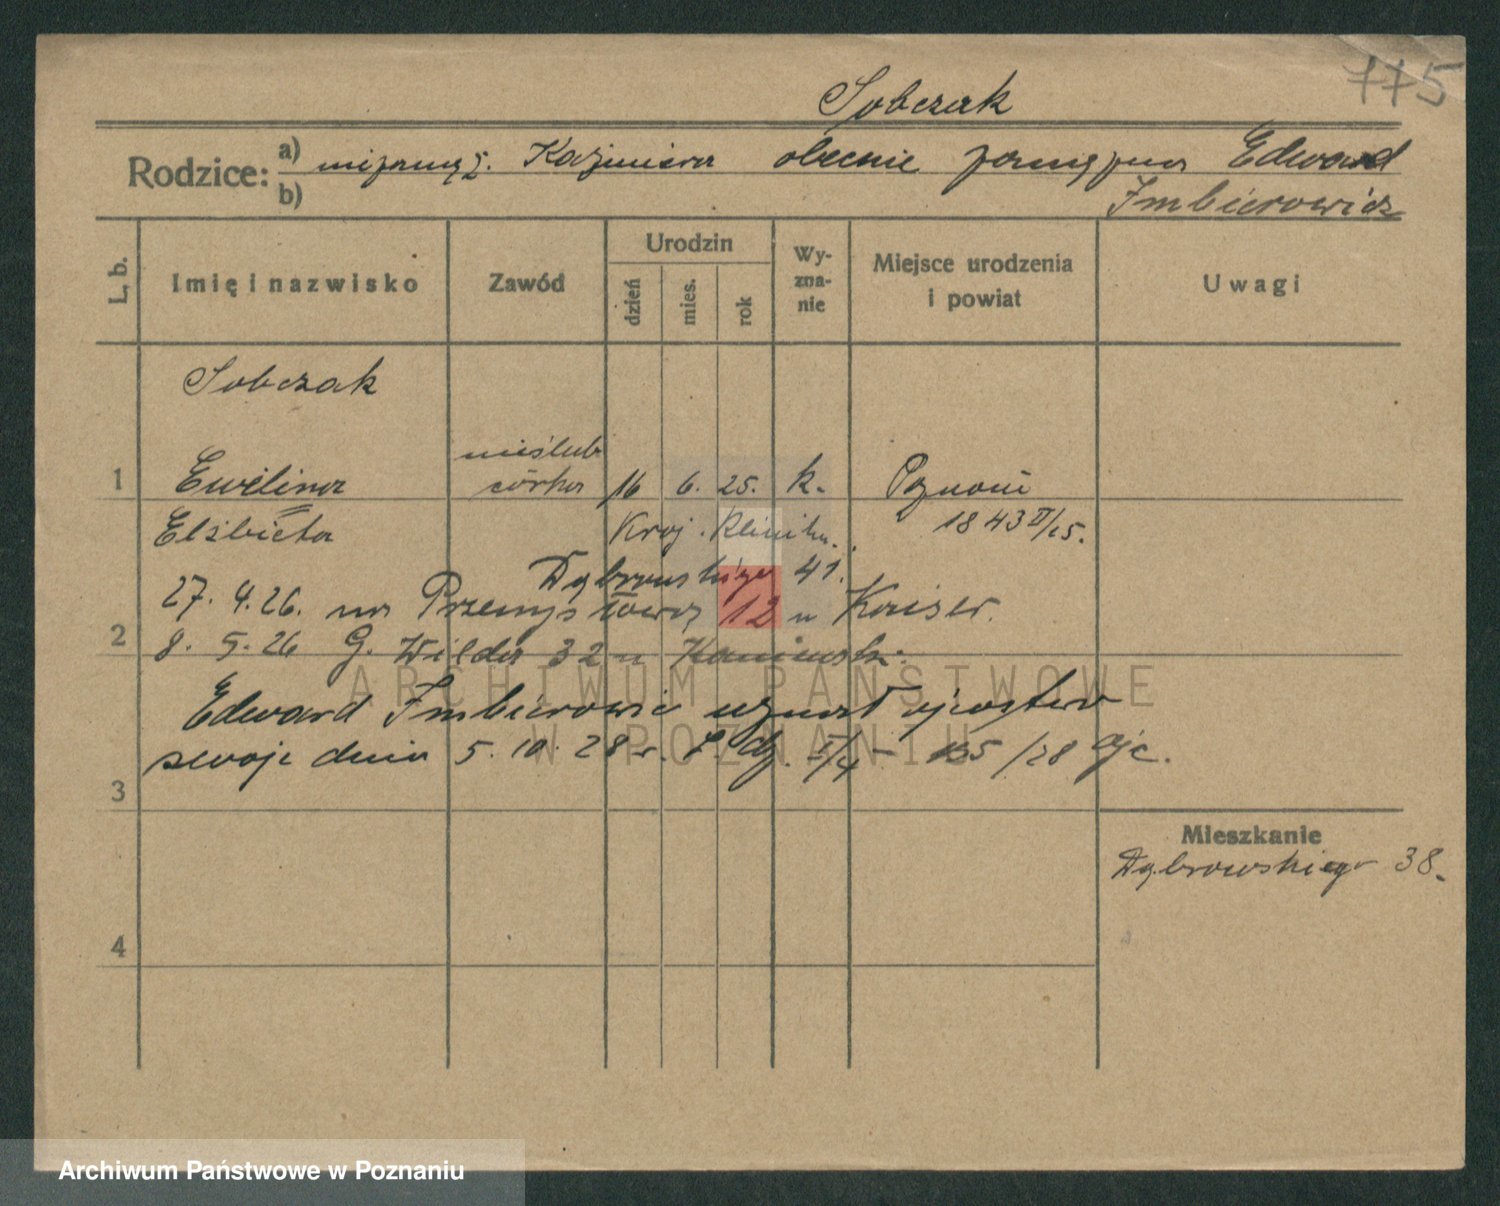 775
Sobczak
Rodzice: a) niezamęż. Kazimiera obecnie zamężna Edward
b) Imbierowicz
L. b. Imię i nazwisko Zawód Urodzin dzień mies. rok Wy-zna-nie Miejsce urodzenia i powiat Uwagi
Sobczak
nieślub
1 Ewelina córka 16 6. 25. k. Poznań
Elżbieta Kraj. Klinika. 1843 II/25.
Dąbrowskiego 41.
27. 4. 26. na Przemysłową 12 u Kaiser.
2 8. 5. 26 G. Wilda 32 u
ARCHIWUM PAŃSTWOWE
W POZNANIU
Edward Imbierowicz uznał ojcostwo
swoje dnia 5. 10. 28 r. L. dz. I/4 – 135/28 ojc.
3
Mieszkanie
Dąbrowskiego 38.
4
Archiwum Państwowe w Poznaniu